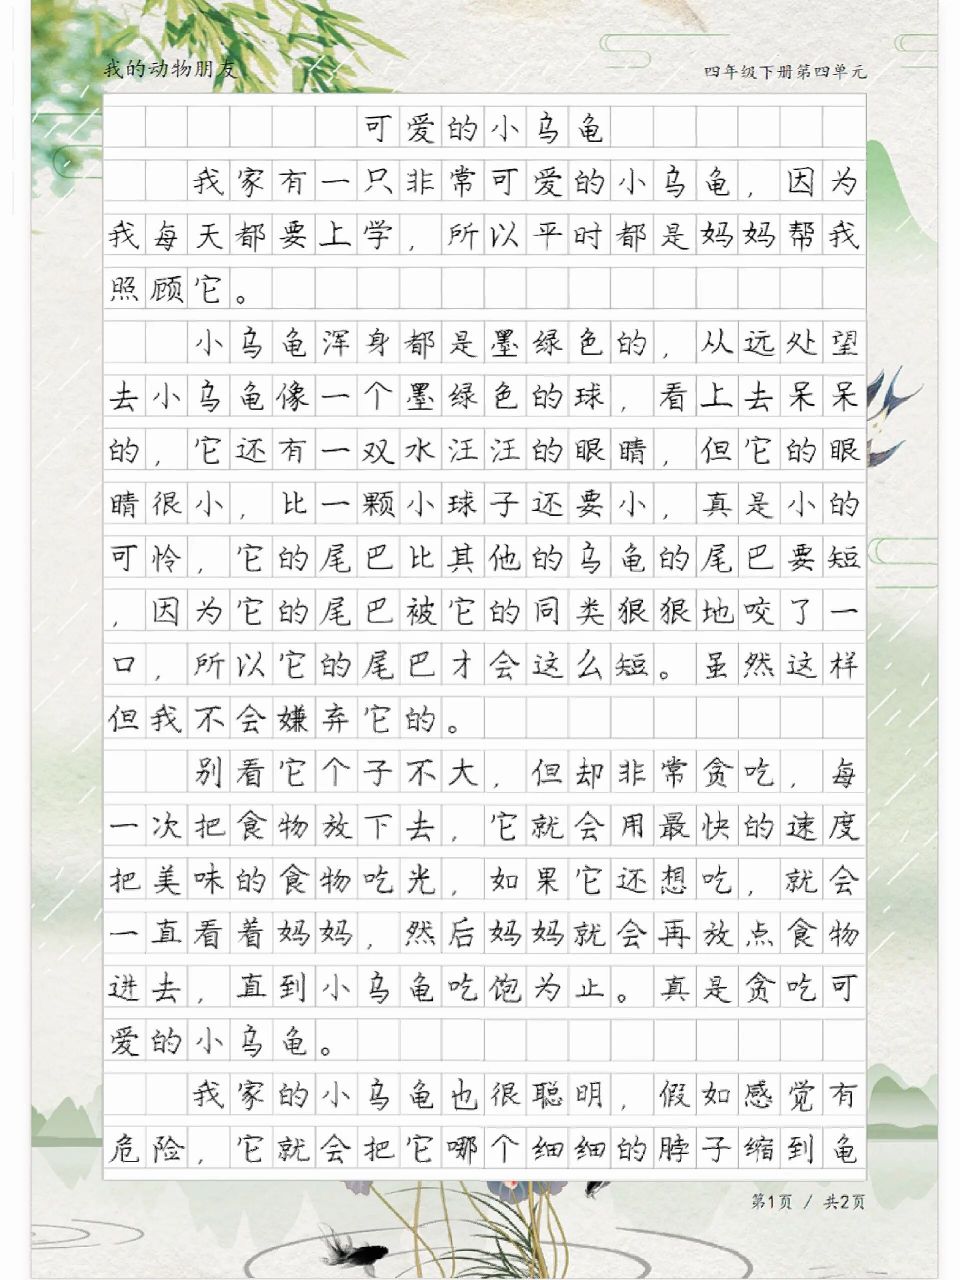 我的动物朋友
四年级下册第四单元
可爱的小乌龟
我家有一只非常可爱的小乌龟，因为
我每天都要上学，所以平时都是妈妈帮我
照顾它。
小乌龟浑身都是墨绿色的，从远处望
去小乌龟像一个墨绿色的球，看上去呆呆
的，它还有一双水汪汪的眼睛，但它的眼
睛很小，比一颗小球子还要小，真是小的
可怜，它的尾巴比其他的乌龟的尾巴要短
，因为它的尾巴被它的同类狠狠地咬了一
口，所以它的尾巴才会这么短。虽然这样
但我不会嫌弃它的。
别看它个子不大，但却非常贪吃，每
一次把食物放下去，它就会用最快的速度
把美味的食物吃光，如果它还想吃，就会
一直看着妈妈，然后妈妈就会再放点食物
进去，直到小乌龟吃饱为止。真是贪吃可
爱的小乌龟。
我家的小乌龟也很聪明，假如感觉有
危险，它就会把它哪个细细的脖子缩到龟
第1页 / 共2页